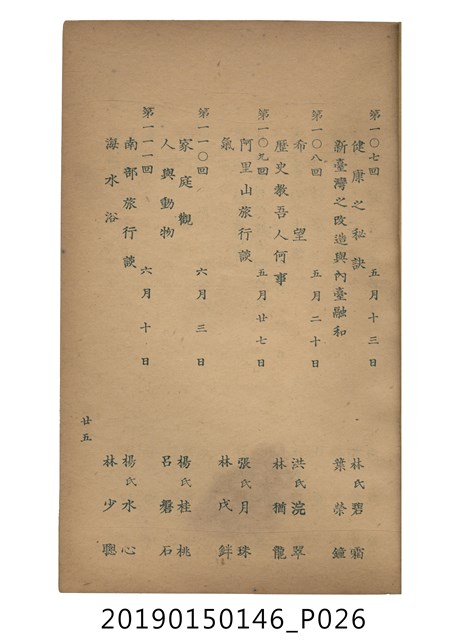 第一〇七回 五月十三日
健康之秘訣 林氏碧霜
新臺灣之改造與內臺融和 葉榮鐘
第一〇八回 五月二十日
希望 洪氏浣翠
歷史教吾人何事 林猶龍
第一〇九回 五月廿七日
阿里山旅行談 張氏月珠
氣 林戊鉡
第一一〇回 六月三日
家庭觀 楊氏桂桃
人與動物 呂磐石
第一一一回 六月十日
南部旅行談 楊氏水心
海水浴 林少聰
廿五
20190150146_P026